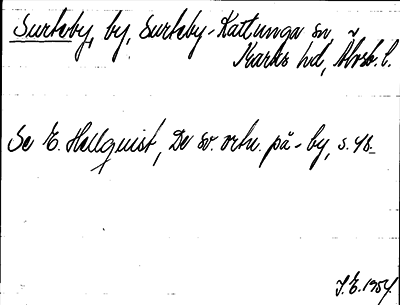 Surteby, by, Surteby-Kattunga sn,
Marks hd, Älvsb. l.
Se E. Hellquist, De sv. ortn. på -by, s. 48.
J.E. 1954.